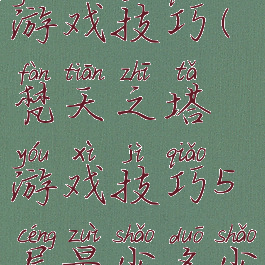 游戏技巧(
fàn tiān zhī tǎ
梵天之塔
yóu xì jì qiǎo
游戏技巧5
céng zuì shǎo duō shǎo
层最少多少